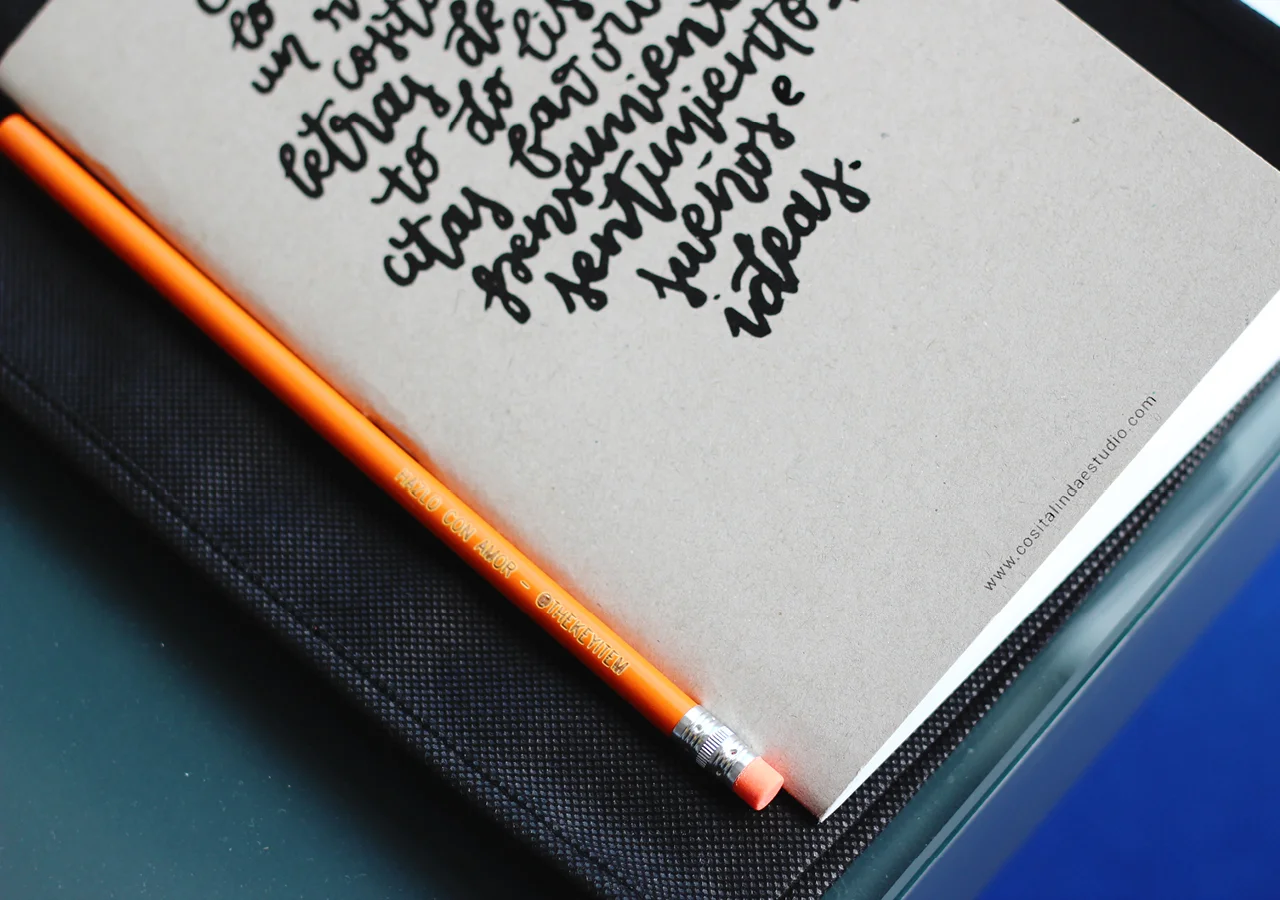 to
un
letras de
to do lis
citas favori
pensamient
sentimiento
sueños e
ideas.
www.cositalindaestudio.com
HAZLO CON AMOR - @THEKEYITEM